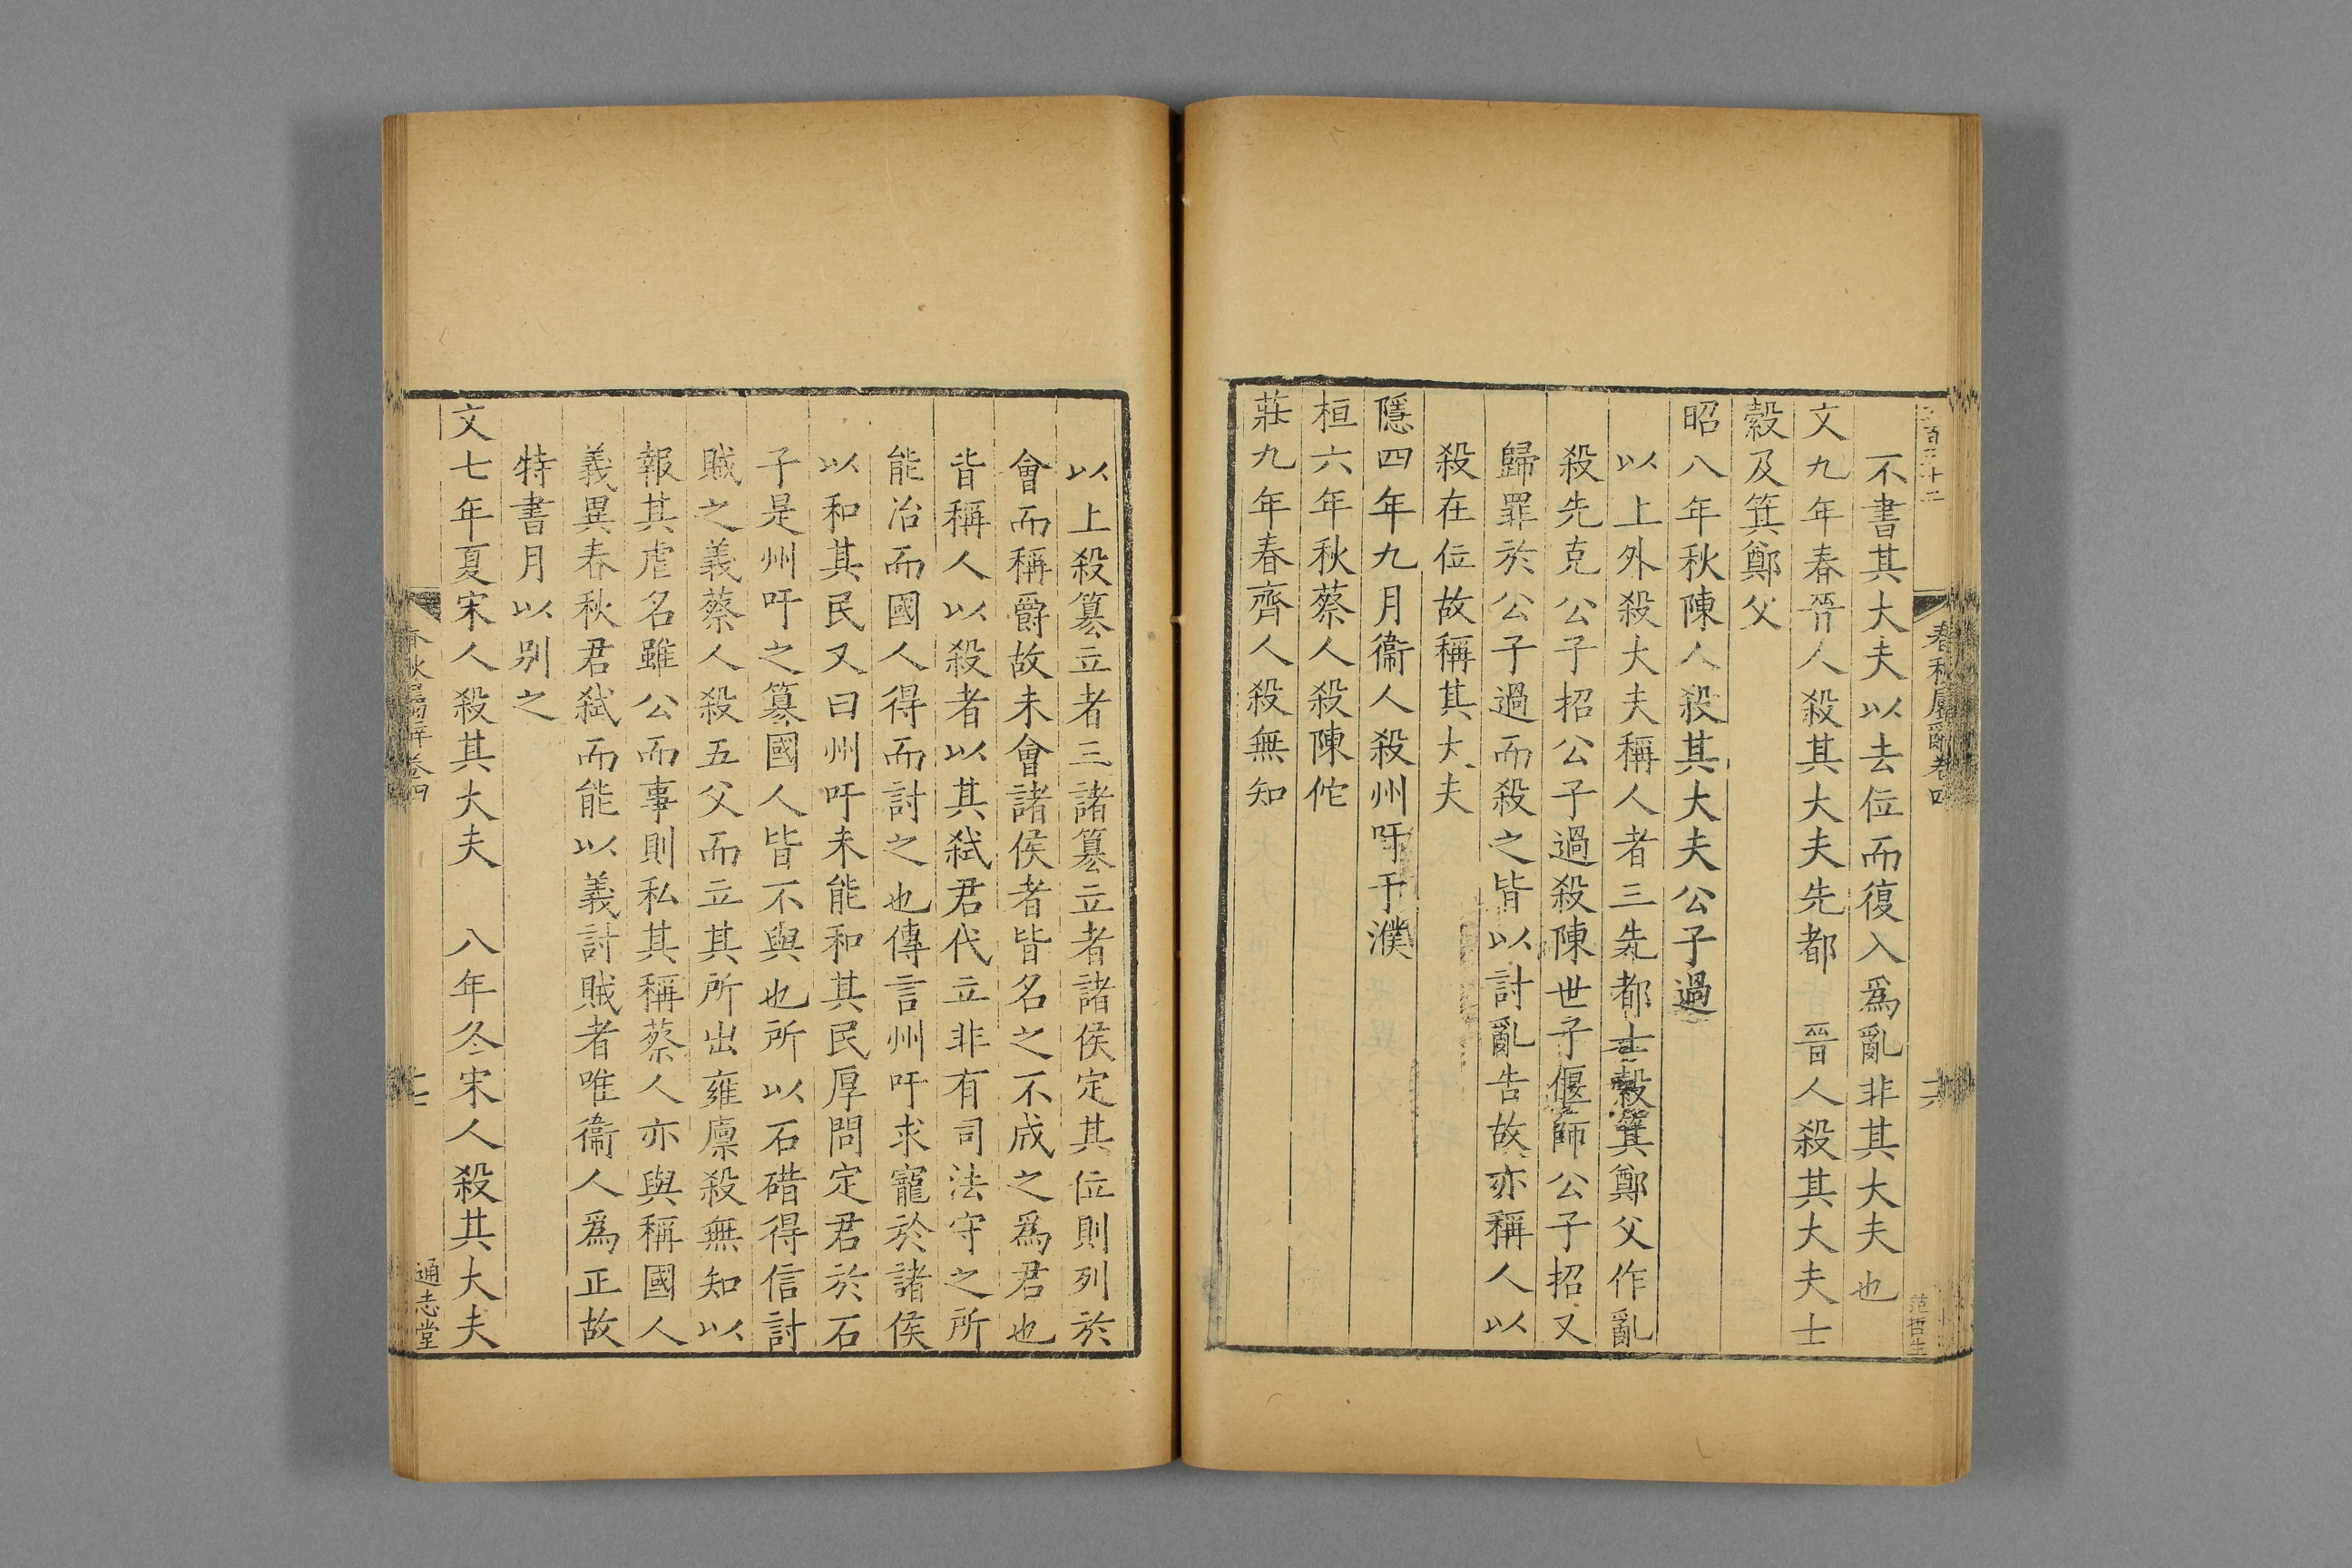 春秋屬辭卷四
不書其大夫以去位而復入爲亂非其大夫也
文九年春晉人殺其大夫先都 晉人殺其大夫士
縠及箕鄭父
昭八年秋陳人殺其大夫公子過
以上外殺大夫稱人者三先都士縠箕鄭父作亂
殺先克公子招公子過殺陳世子偃師公子招又
歸罪於公子過而殺之皆以討亂告故亦稱人以
殺在位故稱其大夫
隱四年九月衞人殺州吁于濮
桓六年秋蔡人殺陳佗
莊九年春齊人殺無知
范哲生
以上殺篡立者三諸篡立者諸侯定其位則列於
會而稱爵故未會諸侯者皆名之不成之爲君也
皆稱人以殺者以其弒君代立非有司法守之所
能治而國人得而討之也傳言州吁求寵於諸侯
以和其民又曰州吁未能和其民厚問定君於石
子是州吁之篡國人皆不與也所以石碏得信討
賊之義蔡人殺五父而立其所出雍廩殺無知以
報其虐名雖公而事則私其稱蔡人亦與稱國人
義異春秋君弒而能以義討賊者唯衞人爲正故
特書月以別之
文七年夏宋人殺其大夫 八年冬宋人殺其大夫
春秋屬辭卷四
通志堂